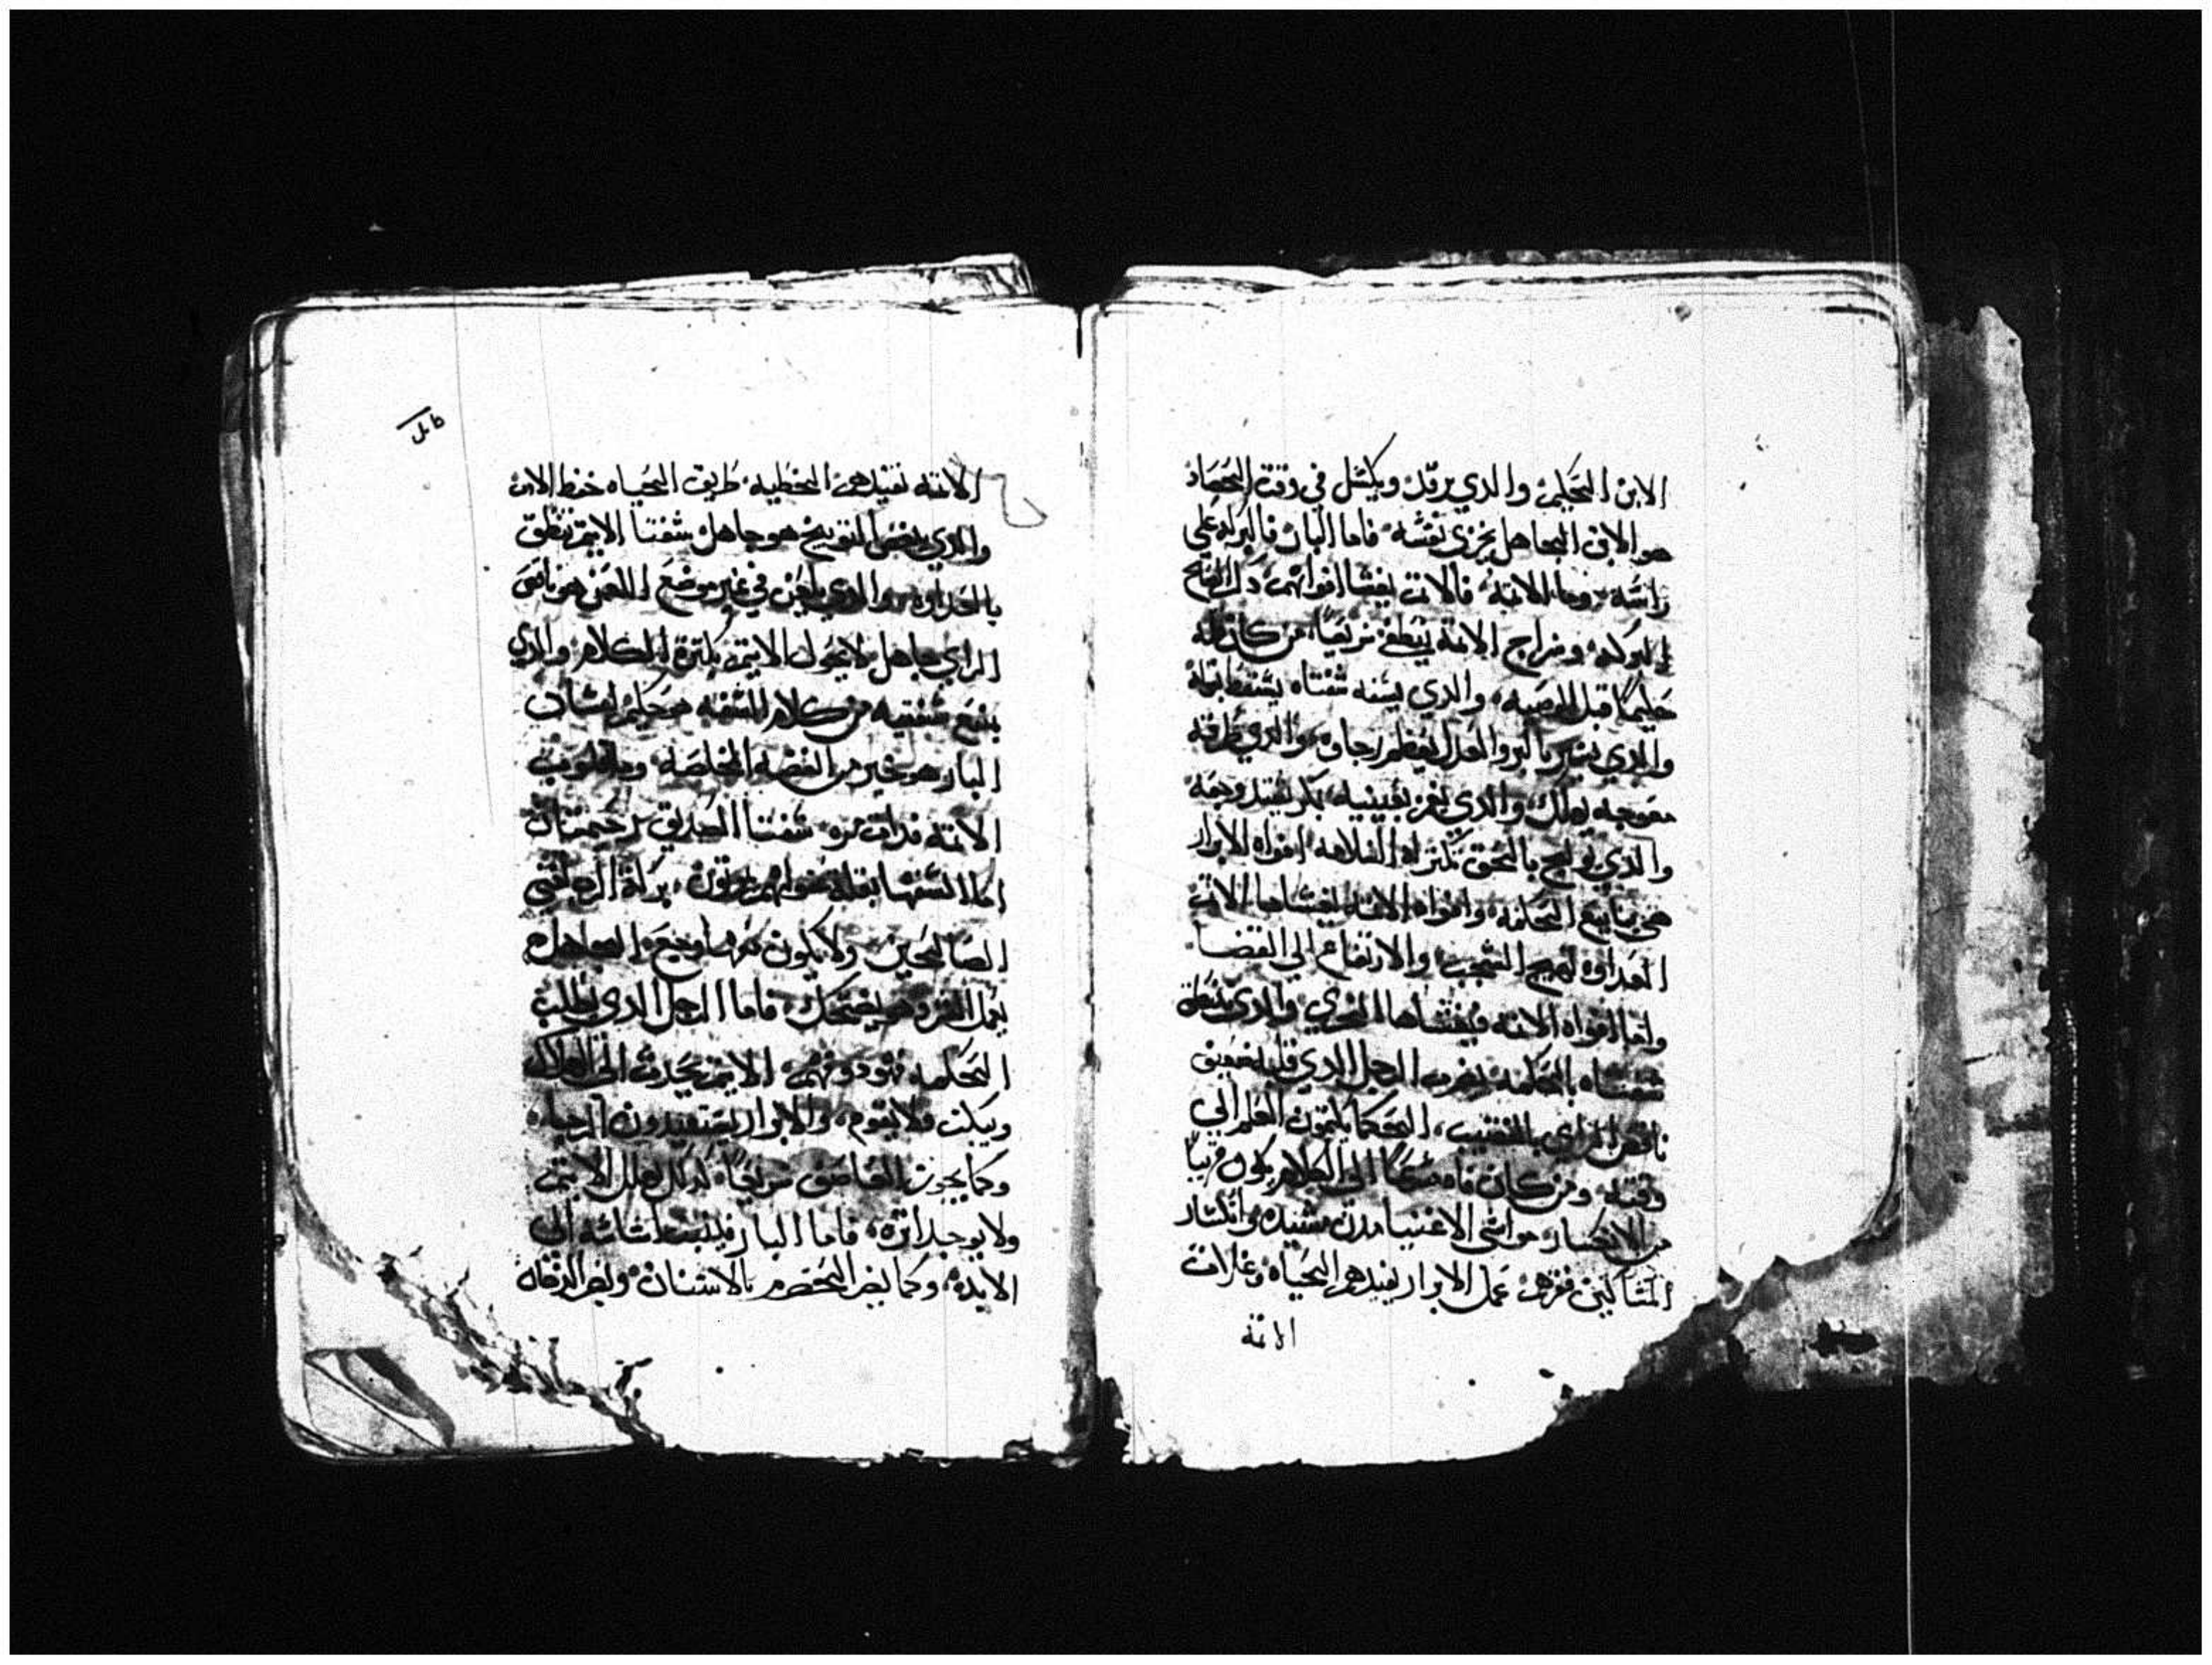 الابن الحكيم والدي يرقد ويكسل في وقت الحصاد
هو الابن الجاهل يخزي نفسه فاما البار فالبركه علي
راسه واما الاتمه فالاتم يغشا افواههم
وسراج الاتمه ينطفي سريعا من كان قلبه
حكيما قبل الوصيه والدي يسفه شفتاه يسقط
والدي يسير بالبر والعدل يعظم رجاوه والدي طرقه
معوجه يهلك والدي يغمز بعينيه بمكر يفتد وجعه
والدي يوبخ بالحق تكتر له السلامه افواه الابرار
هي ينابيع الحكمه وافواه الاتمه يغشاها الاتم
العداوه تهيج الشجب والارتفاع الي القضا
واما افواه الاتمه فيغشاها الخزي والدي ينطق
شفتاه بالحكمه يضرب الرجل الدي قلبه ضعيف
ناقص الراي بالقضيب الحكما يكتمون العلم الي
وقته ومن كان فاه الي الكلام يكون قريبا
من الانكسار مواشي الاغنيا مدن مشيده وانكسار
المساكين فقرهم عمل الابرار يفيدهم الحياه وغلات
الاتمه
كامل
الاتمه تفيدهم الخطيه طريق الحياه حفظ الادب
والدي يبغض التوبيخ هو جاهل شفتا الاتيم تنطق
بالعداوه والدي يلعن في غير موضع اللعن هو ناقص
الراي جاهل لا يعول الاتيم بكترة الكلام والدي
يمنع شفتيه من كلام السفه هو حكيم لسان
البار هو خير من الفضه المخلصه وقلوب
الاتمه مرة شفتا الصديق رحمتان
اما السفها بقلة يموتون بركة الرب تغني
الصالحين ولا يكون معها وجع الجاهل
يعمل الشر وهو يضحك فاما الرجل الدي يطلب
الحكمه فهو دو فهم الاتيم يحدث الي الهلاك
وينكت فلا يقوم والابرار يستفيدون الرجا
وكما يجوز العاصف سريعا كدلك يهلك الاتيم
ولا يوجد اتره فاما البار فيتبت اساسه الي
الابد وكما يضر الحصرم بالاسنان ويضر الدخان